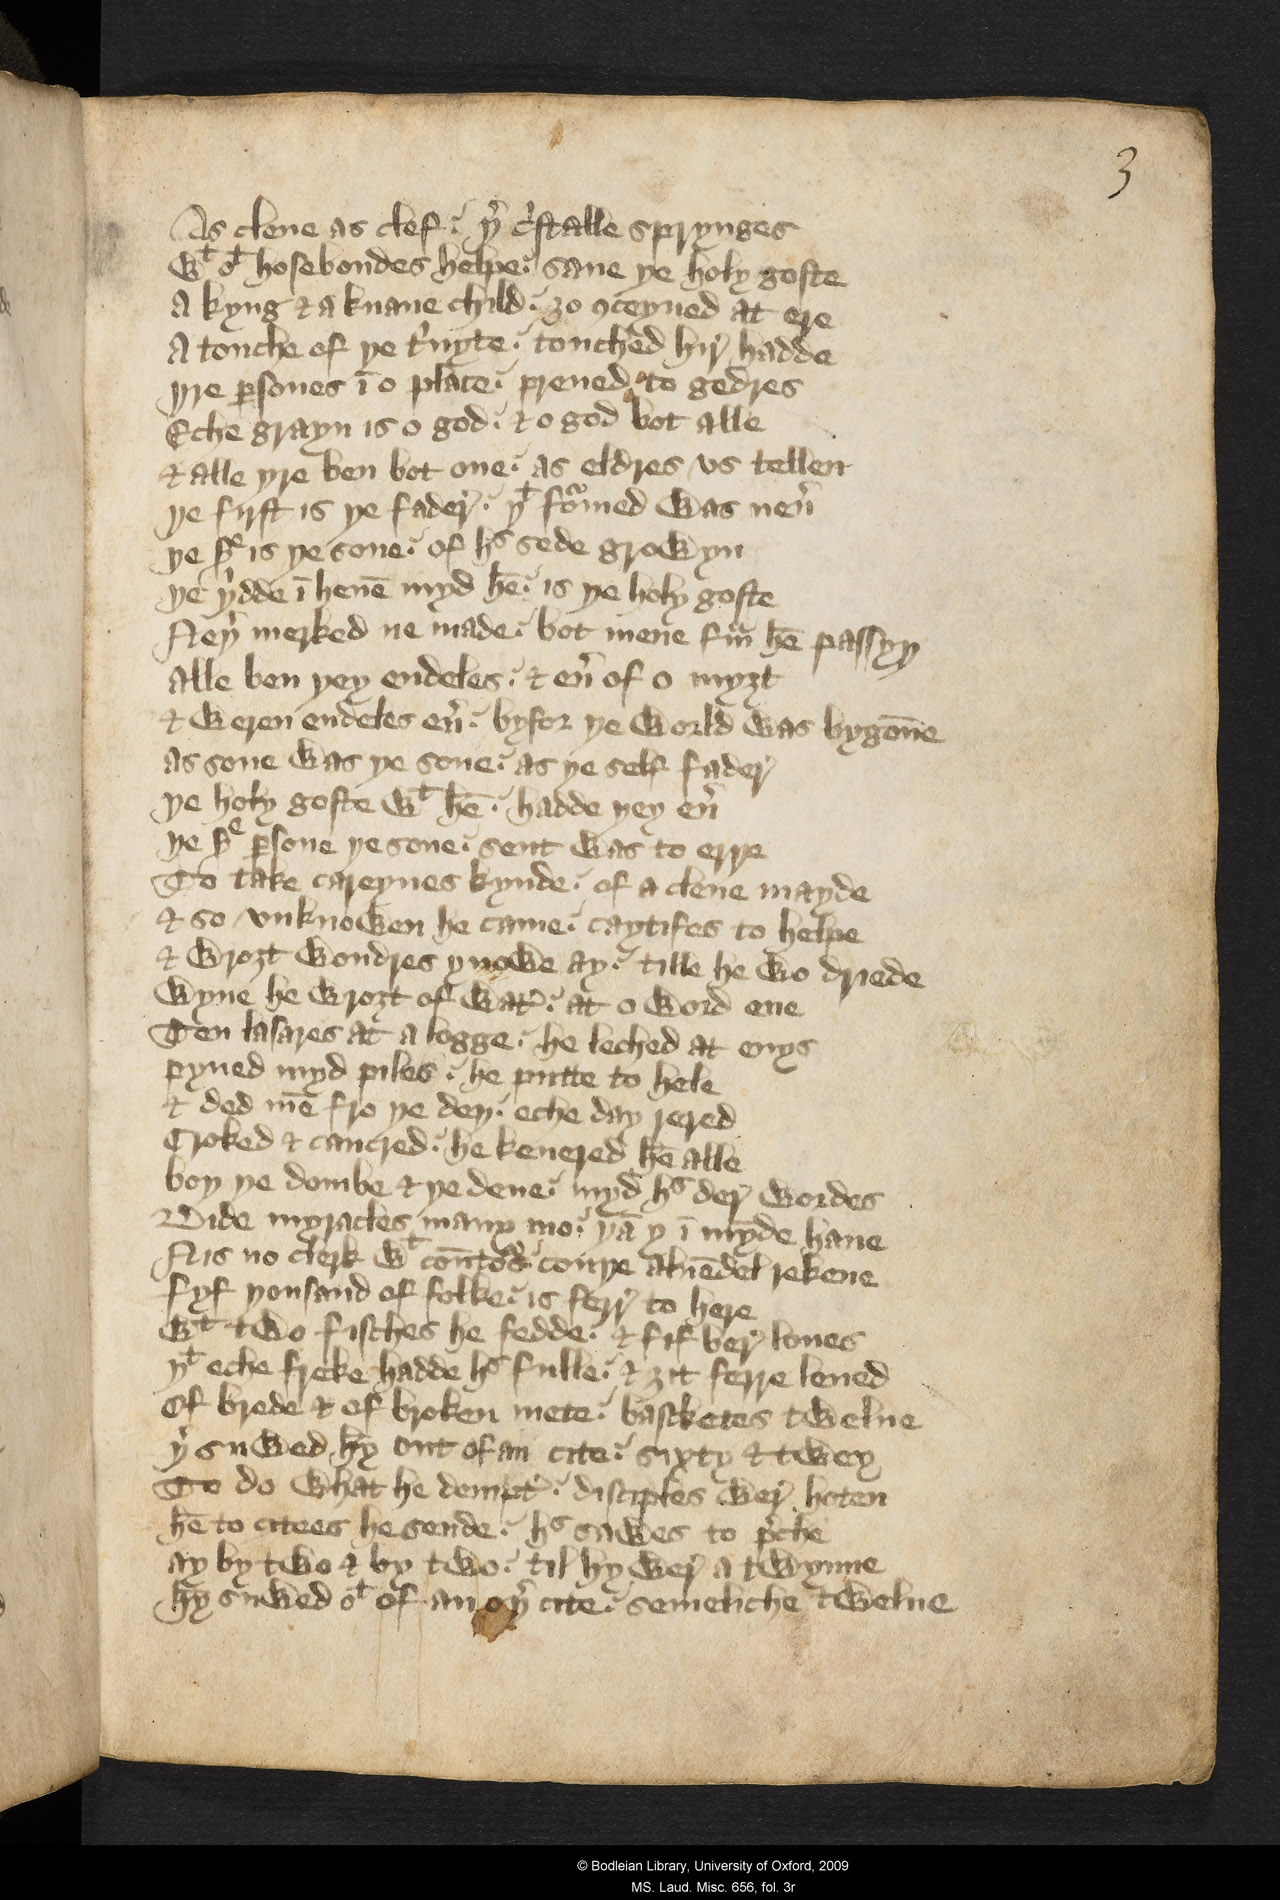 3
As clene as clef · þer cristalle sprynges
Wt ot hosebondes helpe · saue þe holy goste
A kyng & a knaue child · ȝo conceyued at ere
A touche of þe trinyte · touched hir hadde
þre persones ī o place · preued to gedres
Eche grayn is o god · & o god bot alle
& alle þre ben bot one · as eldres vs tellen
þe first is þe fader · þt fourmed was neuer
þe se is þe sone · of hs sede growyn
þe þridde ī heuē myd hē · is þe holy goste
Neþer merked ne made · bot mene fram hē passyþ
Alle ben þey endeles · & euen of o myȝt
& weren endeles euer · byfor þe world was bygōne
As sone was þe sone · as þe self fader
þe holy goste wt hē · hadde þey euer
þe se persone þe sone · sent was to erþe
To take careynes kynde · of a clene mayde
& so vnknowen he came · caytifes to helpe
& wroȝt wondres ynowe ay · tille he wo driede
Wyne he wroȝt of water · at o word ene
Ten lasares at a logge · he leched at enys
Pyned myd piles · he putte to hele
& ded mē fro þe deþ · eche day rered
Croked & cancred · he keuered hē alle
Boþ þe dombe & þe deue · myd hs der wordes
Dide myracles many mo · þā y ī mȳde haue
Nis no clerk wt coūtours · couþe aluēdel rekene
Fyf þousand of folke · is ferly to here
Wt two fisches he fedde · & fif ber loues
þt eche freke hadde hs fulle · & ȝit ferre leued
Of brede & of broken mete · basketes twelue
þer suwed hȳ out of an cite · sixty & twey
To do what he dempter · disciples wer hoten
hē to citees he sende · hs sawes to preche
Ay by two & by two · til hy wer a twynne
Hȳ suwed ot of an oþer cite · semeliche twelue
© Bodleian Library, University of Oxford, 2009
MS. Laud. Misc. 656, fol. 3r